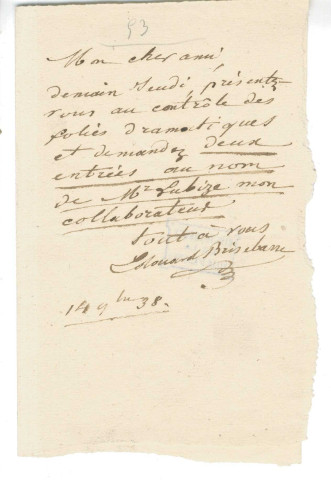 53
Mon cher ami,
demain Jeudi, présentez
vous au contrôle des
folies dramatiques
et demandez deux
entrées au nom
de Mr Lubize mon
collaborateur
tout à vous
Edouard Brisebarre
14 9bre 38.